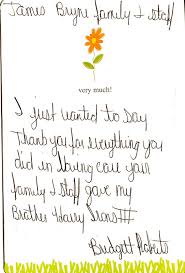 James Bryne family & staff
very much!
I just wanted to say
Thank you for everything you
did in loving care your
family & staff gave my
Brother Harry Sears III
Bridgett Roberts